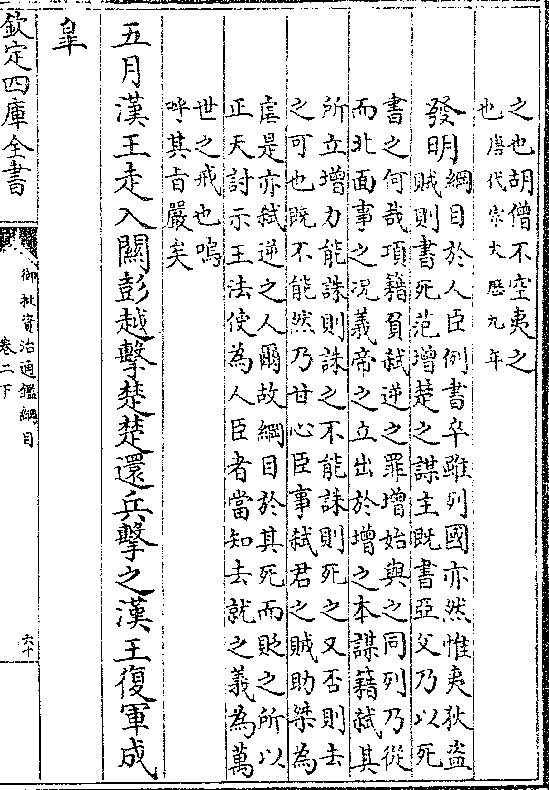 之也胡僧不空夷之
也唐代宗大厯九年
發明綱目於人臣例書卒雖列國亦然惟夷狄盜
賊則書死范增楚之謀主既書亞父乃以死
書之何哉項籍負弑逆之罪增始與之同列乃從
而北面事之况義帝之立出於增之本謀籍弑其
所立增力能誅則誅之不能誅則死之又否則去
之可也既不能然乃甘心臣事弑君之賊助桀為
虐是亦弑逆之人爾故綱目於其死而貶之所以
正天討示王法使為人臣者當知去就之義為萬
世之戒也嗚
呼其旨嚴矣
五月漢王走入關彭越擊楚楚還兵擊之漢王復軍成
皐
欽定四庫全書
御批資治通鑑綱目
卷二下
六十